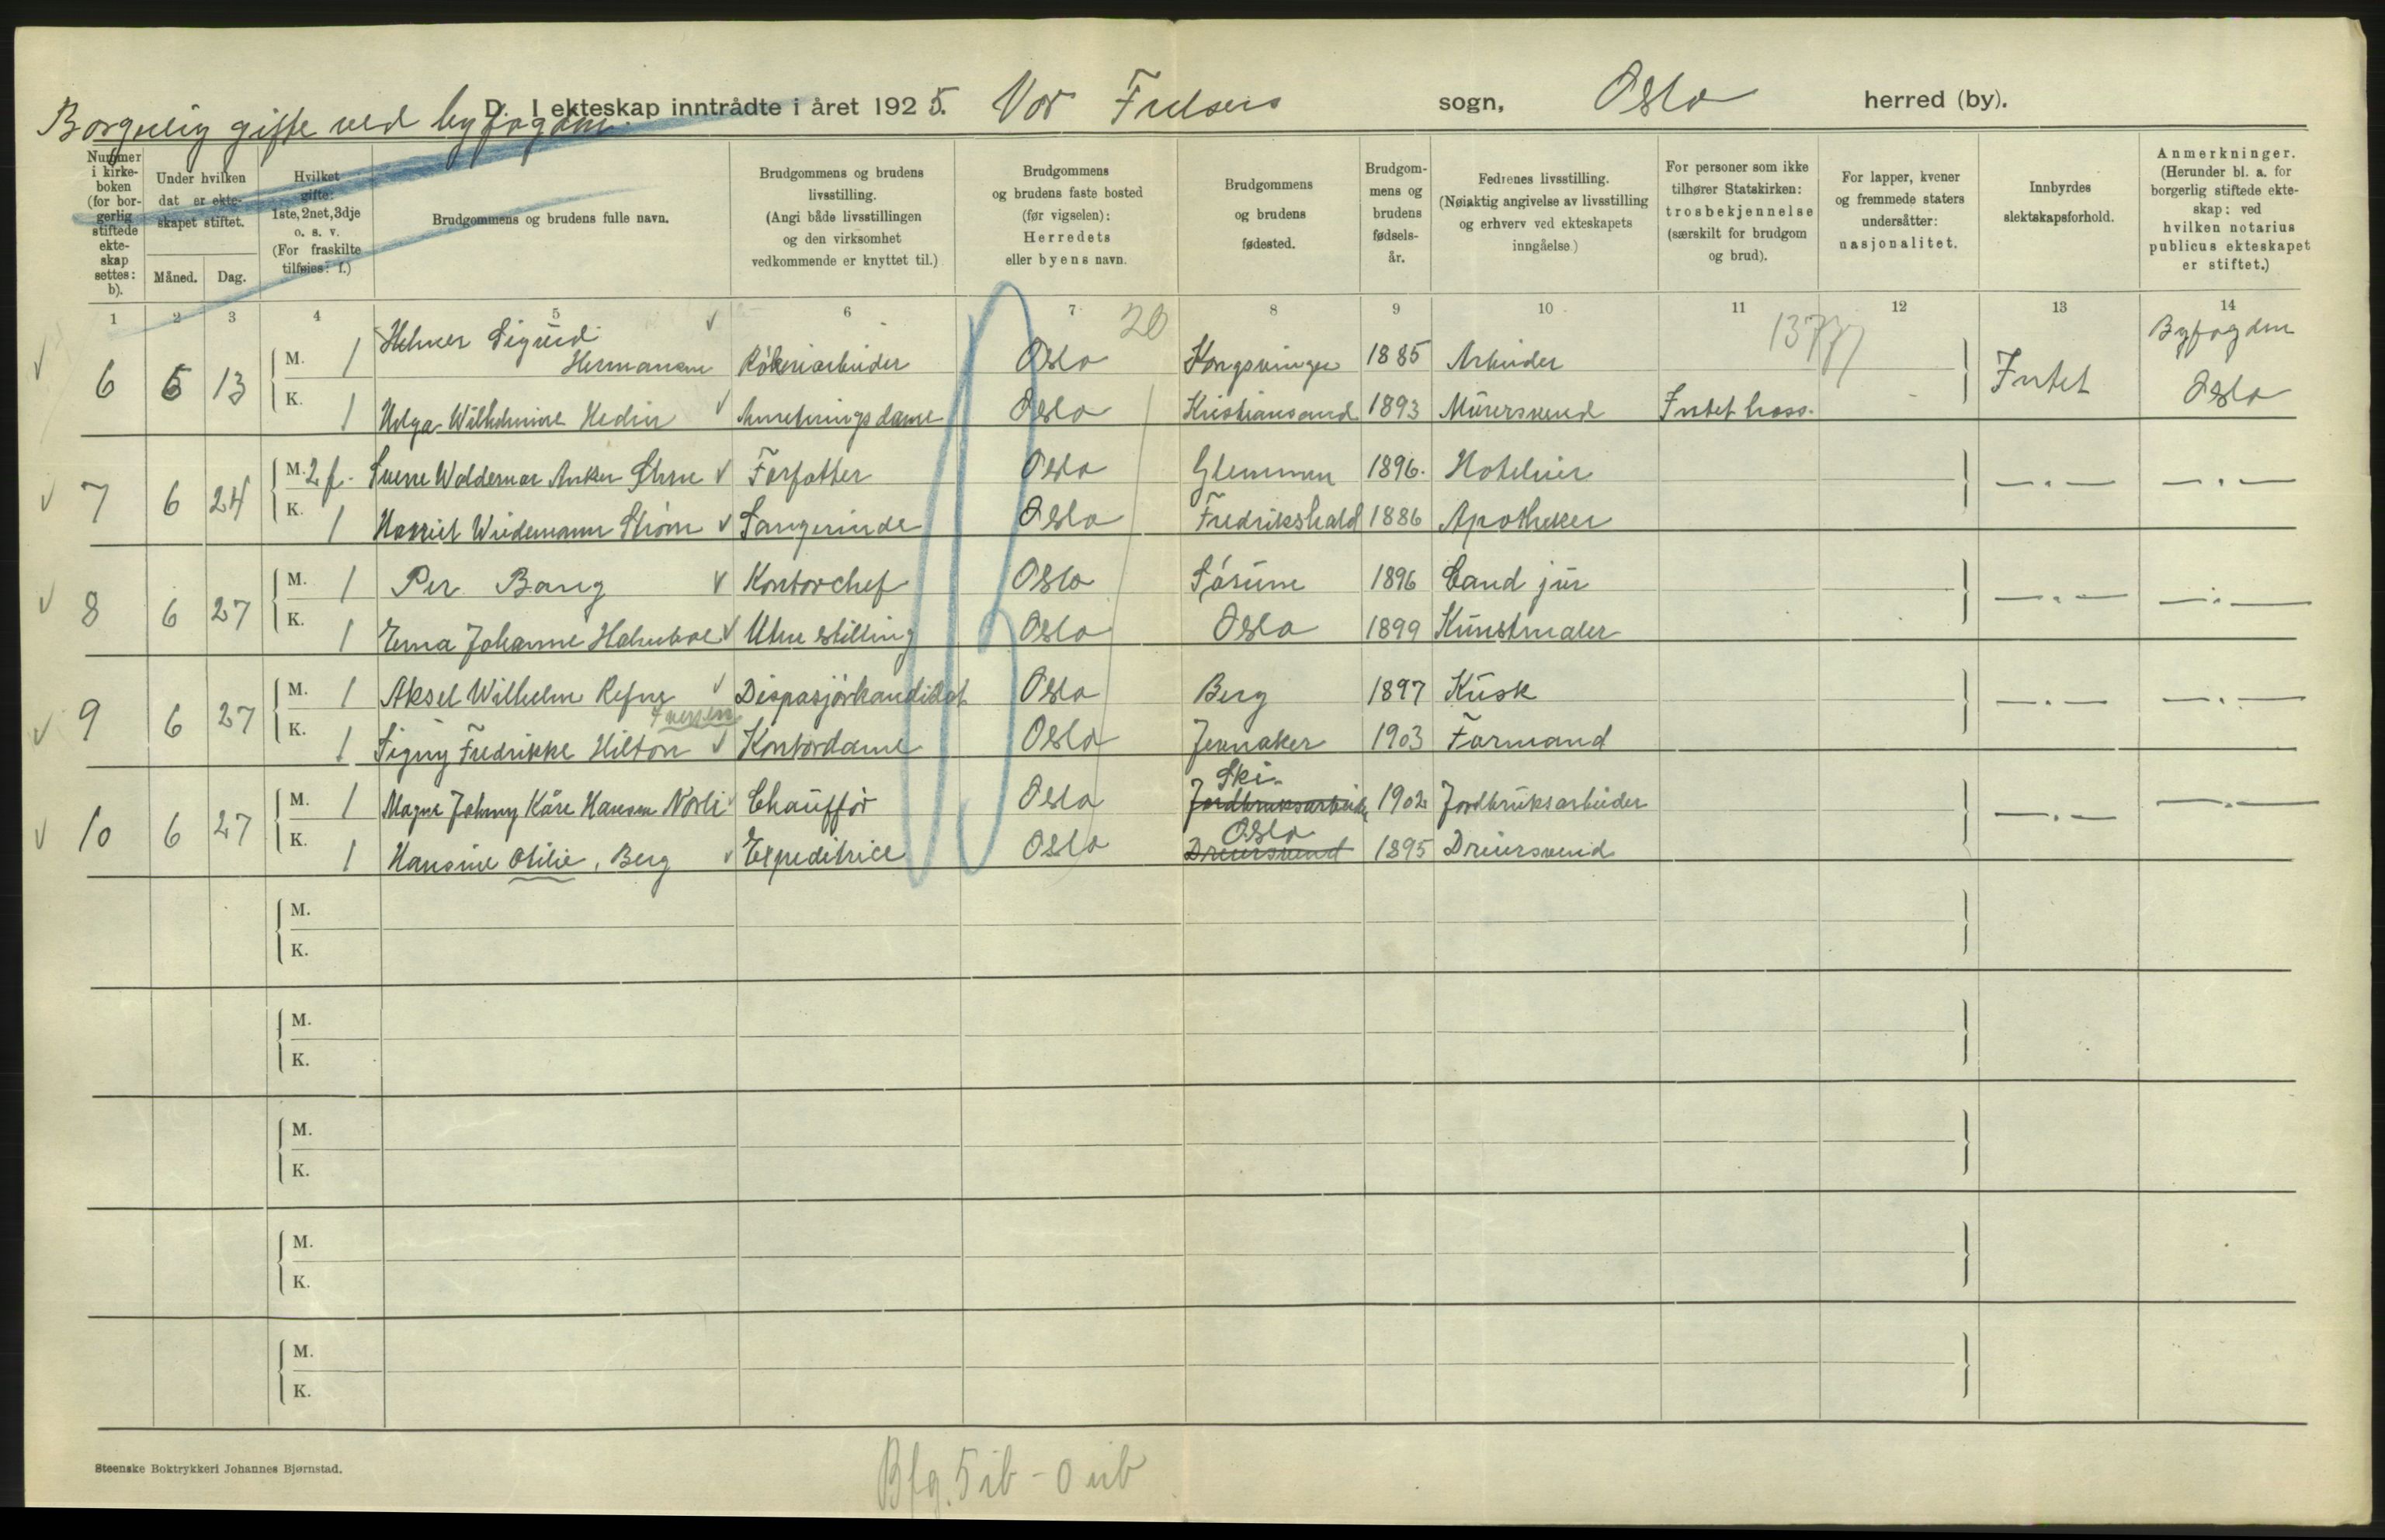 D. I ekteskap inntrådte i året 1925. Vor Frelsers sogn, Oslo herred (by).
Borgerlig gifte ved byfogden.
Nummer i kirkeboken (for borgerlig stiftede ekteskap settes: b).
Under hvilken dat er ekteskapet stiftet.
Måned. Dag.
Hvilket gifte: 1ste, 2net, 3dje o. s. v. (For fraskilte tilføies: f.)
Brudgommens og brudens fulle navn.
Brudgommens og brudens livsstilling. (Angi både livsstillingen og den virksomhet vedkommende er knyttet til.)
Brudgommens og brudens faste bosted (før vigselen): Herredets eller byens navn.
Brudgommens og brudens fødested.
Brudgommens og brudens fødselsår.
Fedrenes livsstilling. (Nøiaktig angivelse av livsstilling og erhverv ved ekteskapets inngåelse.)
For personer som ikke tilhører Statskirken: trosbekjennelse (særskilt for brudgom og brud).
For lapper, kvener og fremmede staters undersåtter: nasjonalitet.
Innbyrdes slektskapsforhold.
Anmerkninger. (Herunder bl. a. for borgerlig stiftede ekteskap: ved hvilken notarius publicus ekteskapet er stiftet.)
1 2 3 4 5 6 7 8 9 10 11 12 13 14
20
6 5 13 M. 1 Helmer Sigurd Hermansen Røkeriarbeider Oslo Kongsvinger 1885 Arbeider Intet Byfogden Oslo
K. 1 Helga Wilhelmine Hedin Anretningsdame Oslo Kristiansand 1893 Murersvend Intet
7 6 24 M. 2 f. Sverre Waldemar Anker Forfatter Oslo Glemmen 1896. Hoteleier — . — — . —
K. 1 Harriet Wiedemann Strøm Sangerinde Oslo Fredrikshald 1886 Apotheker
8 6 27 M. 1 Per Bang Kontorchef Oslo Sørum 1896 Cand jur — . — — . —
K. 1 Erna Johanne Holmboe Uten stilling Oslo Oslo 1899 Kunstmaler
9 6 27 M. 1 Aksel Wilhelm Refne Dispasjørkandidat Oslo Berg 1897 Kusk — . — — . —
Iversen
K. 1 Signy Fredrikke Hilton Kontordame Oslo Jevnaker 1903 Formand
10 6 27 M. 1 Magne Johnny Kåre Hansen Norli Chauffør Oslo Ski. Jordbruksarbeider 1902 Jordbruksarbeider — . — — . —
K. 1 Hansine Otilie, Berg Expeditrice Oslo Oslo Dreiersvend 1895 Dreiersvend
M.
K.
M.
K.
M.
K.
M.
K.
M.
K.
Steenske Boktrykkeri Johannes Bjørnstad.
Bfg. 5 ib - 0 ub